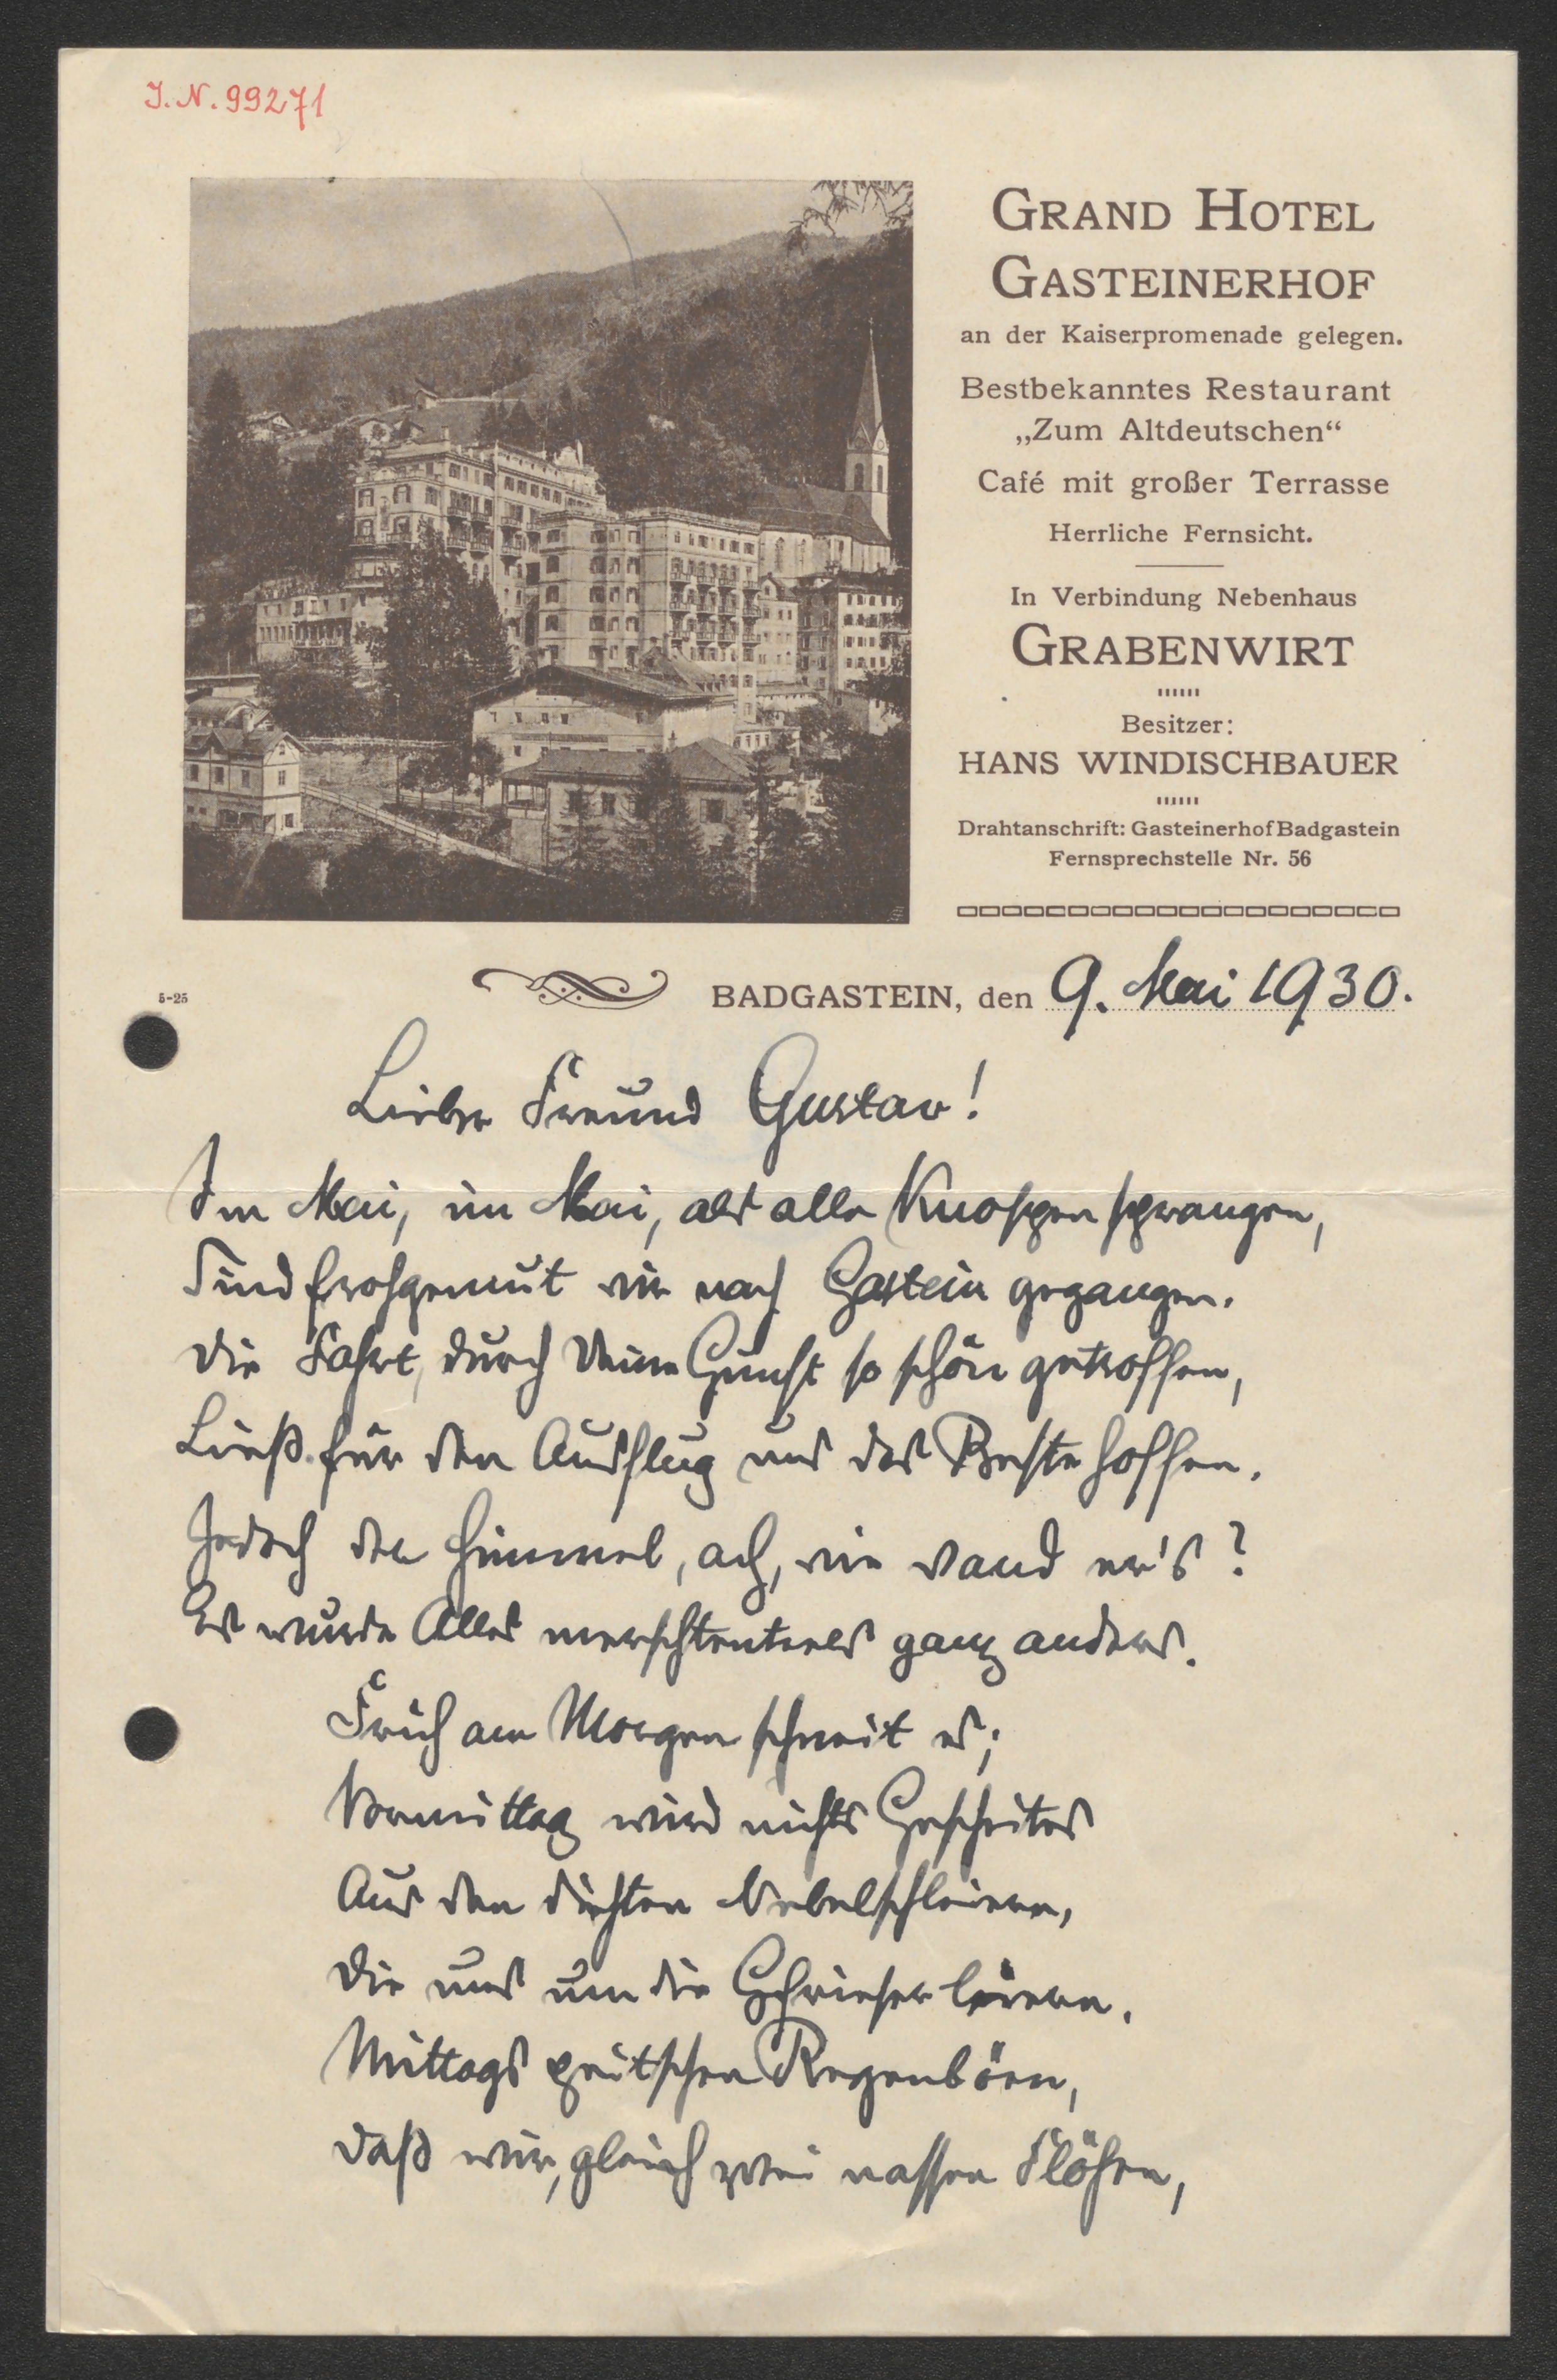 J.N. 99271
GRAND HOTEL
GASTEINERHOF
an der Kaiserpromenade gelegen.
Bestbekanntes Restaurant
„Zum Altdeutschen“
Café mit großer Terrasse
Herrliche Fernsicht.
In Verbindung Nebenhaus
GRABENWIRT
Besitzer:
HANS WINDISCHBAUER
Drahtanschrift: Gasteinerhof Badgastein
Fernsprechstelle Nr. 56
5-25
BADGASTEIN, den 9. Mai 1930.
Lieber Freund Gustav!
Im Mai, im Mai, als alle Knospen sprangen,
Sind frohgemut wir nach Gastein gegangen.
Die Fahrt, durch Deine Gunst so schön getroffen,
Ließ für den Ausflug uns das Beste hoffen.
Jedoch der Himmel, ach, wie wand er's?
Es wurde Alles meerschtenteels ganz anders.
Früh am Morgen schneit es;
Vormittag wird nichts Gescheites
Aus den dichten Nebelschleiern,
Die uns um die leiern.
Mittags peitschen Regenböen,
Daß wir, gleich zwei nassen Flöhen,